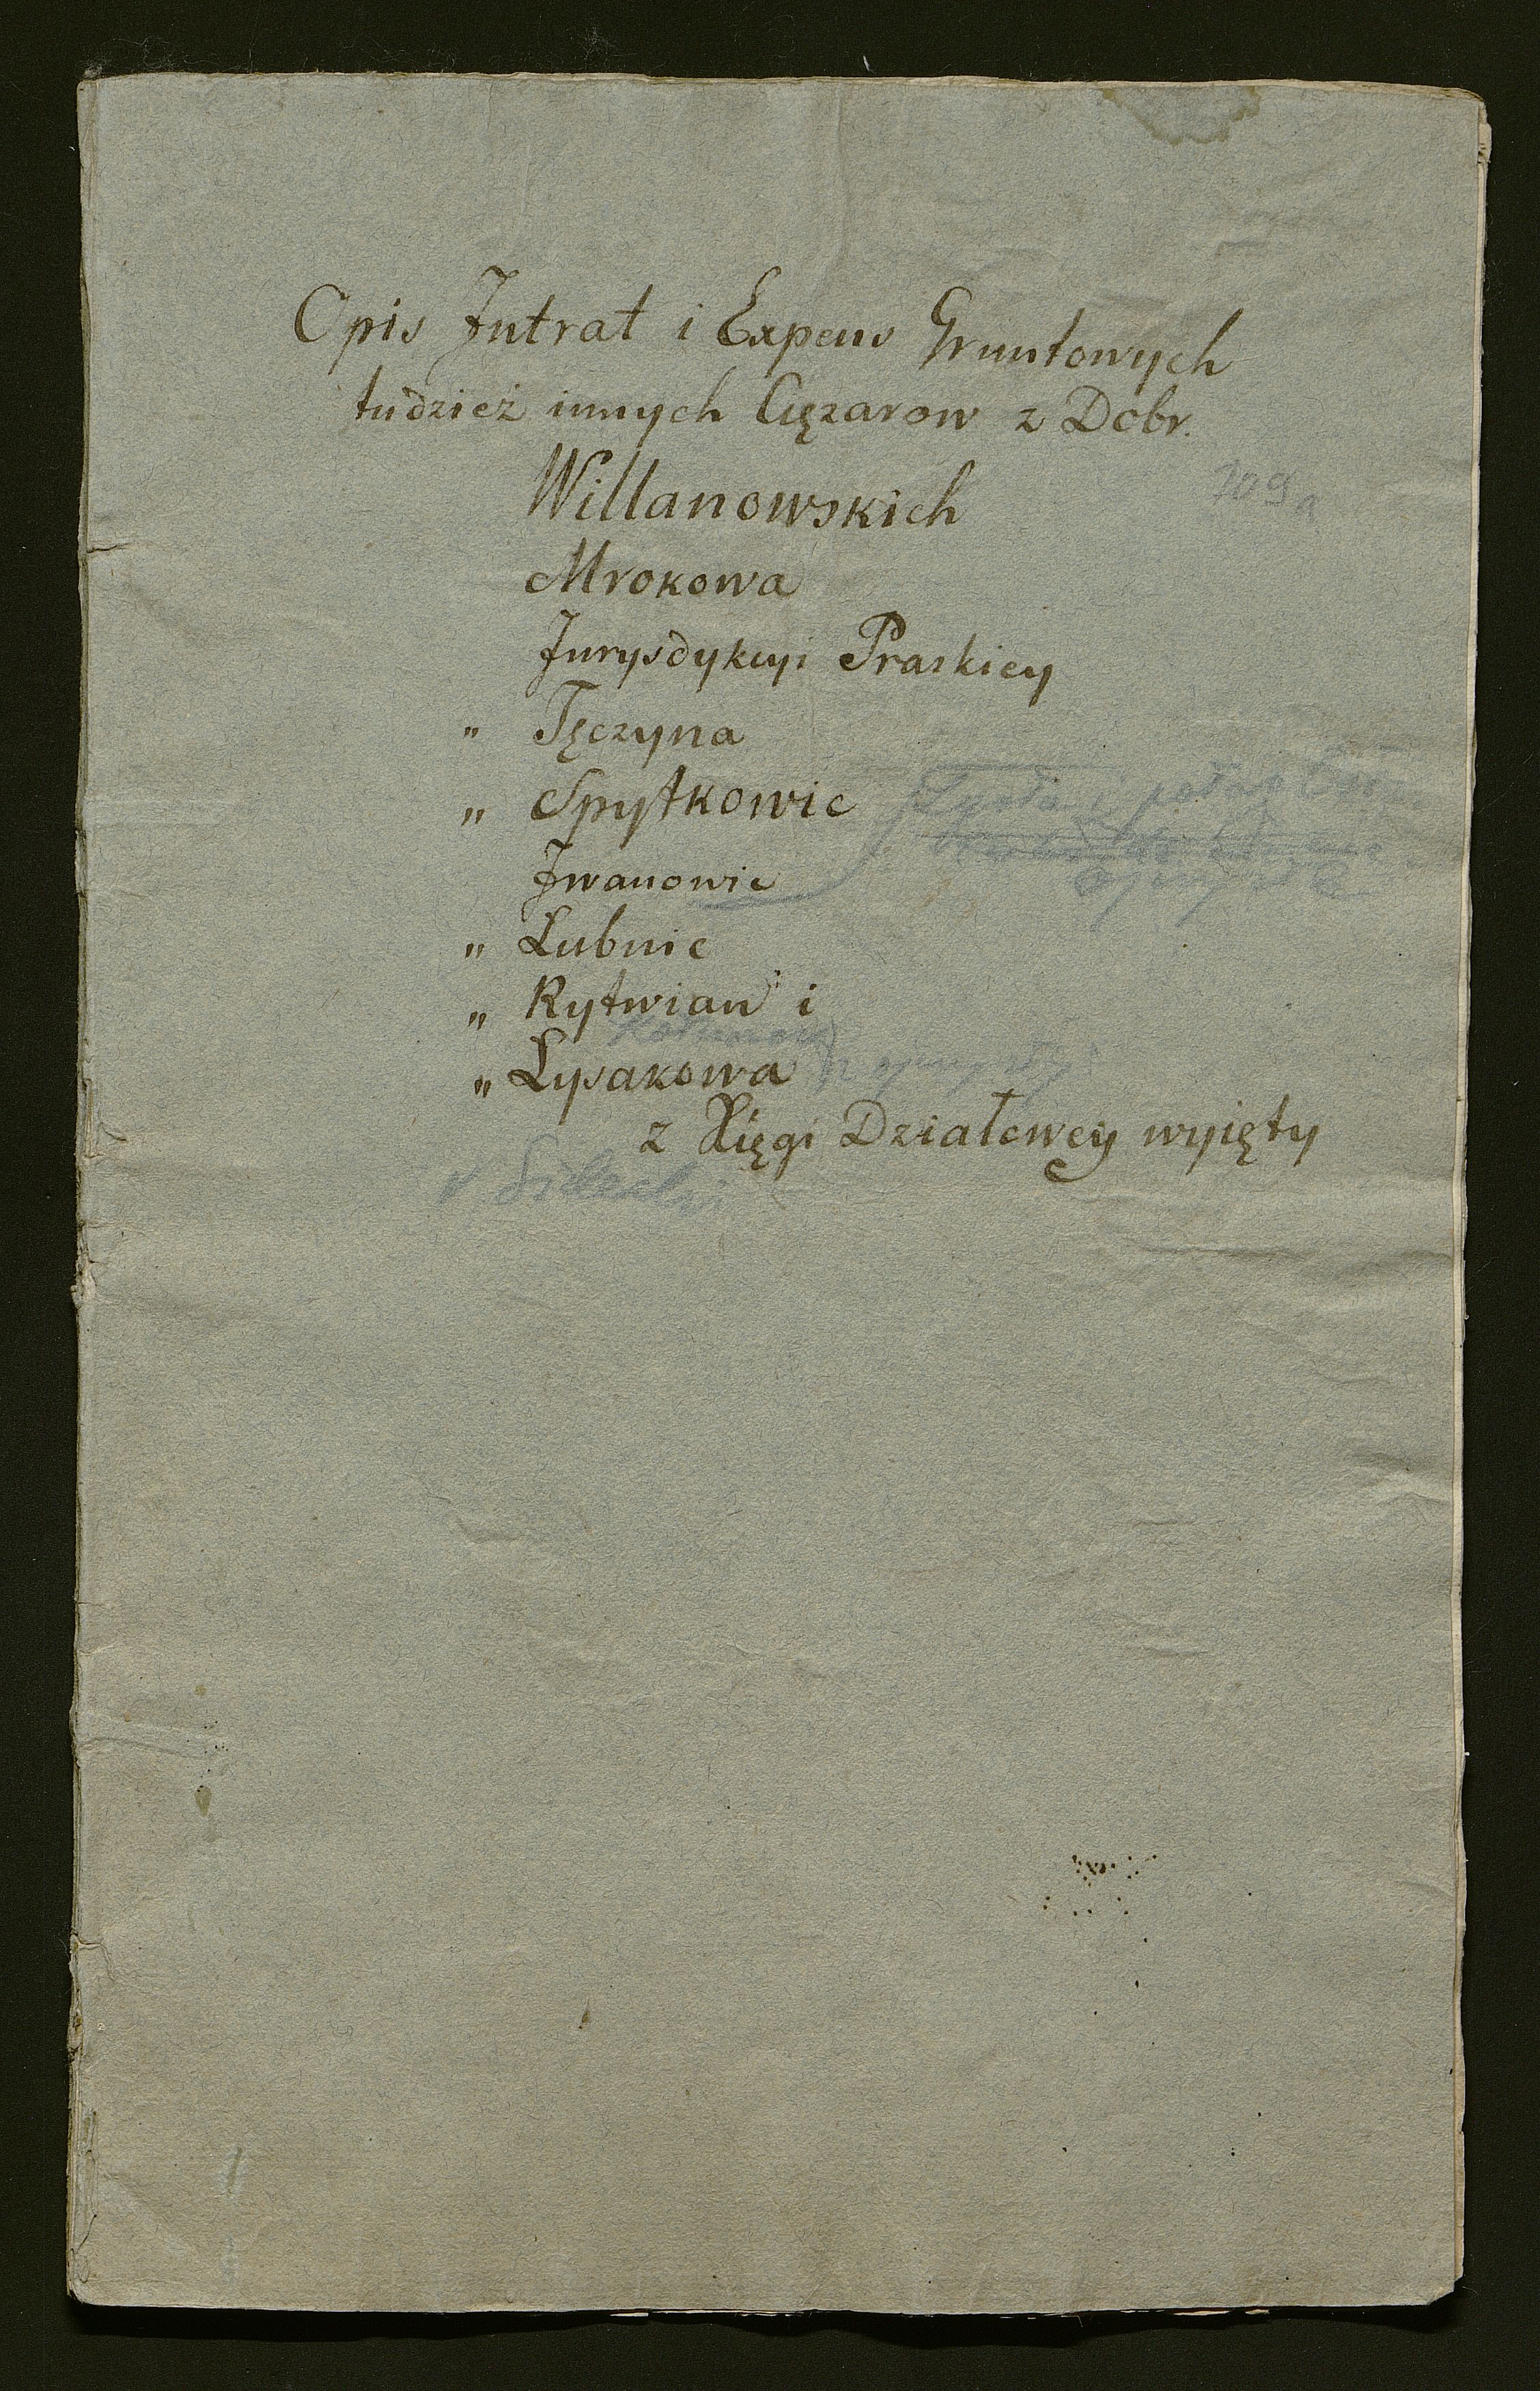 Opis Intrat i Expens Gruntowych
tudzież innych Cięzarow z Dobr.
Willanowskich
109a
Mrokowa
Jurysdykcyi Praskiey
" Tęczyna
" Spytkowic
Iwanowic
" Lubnic
" Rytwian i
" Łysakowa
z Xięgi Działowey wyięty